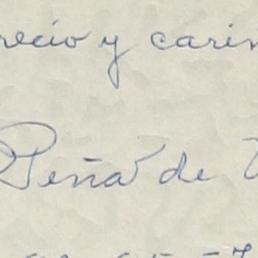 recio y cariñ
Peña de V